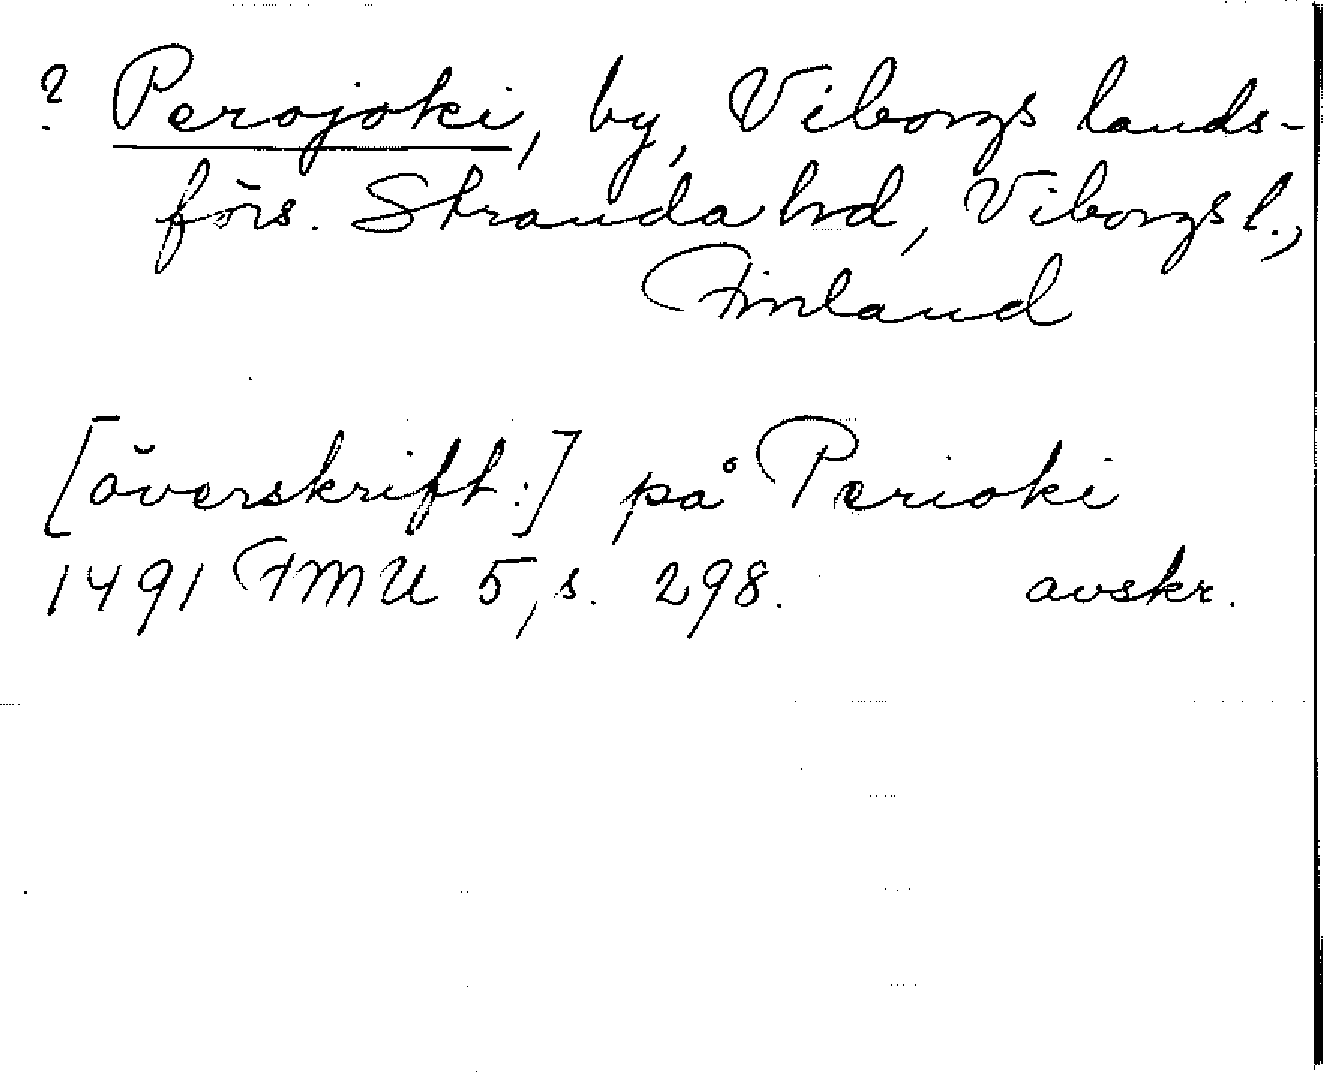 ? Perojoki, by, Viborgs lands-
förs. Stranda hrd, Viborgs l.,
Finland
[överskrift:] på Perioki
1491 FMU 5, s. 298. avskr.